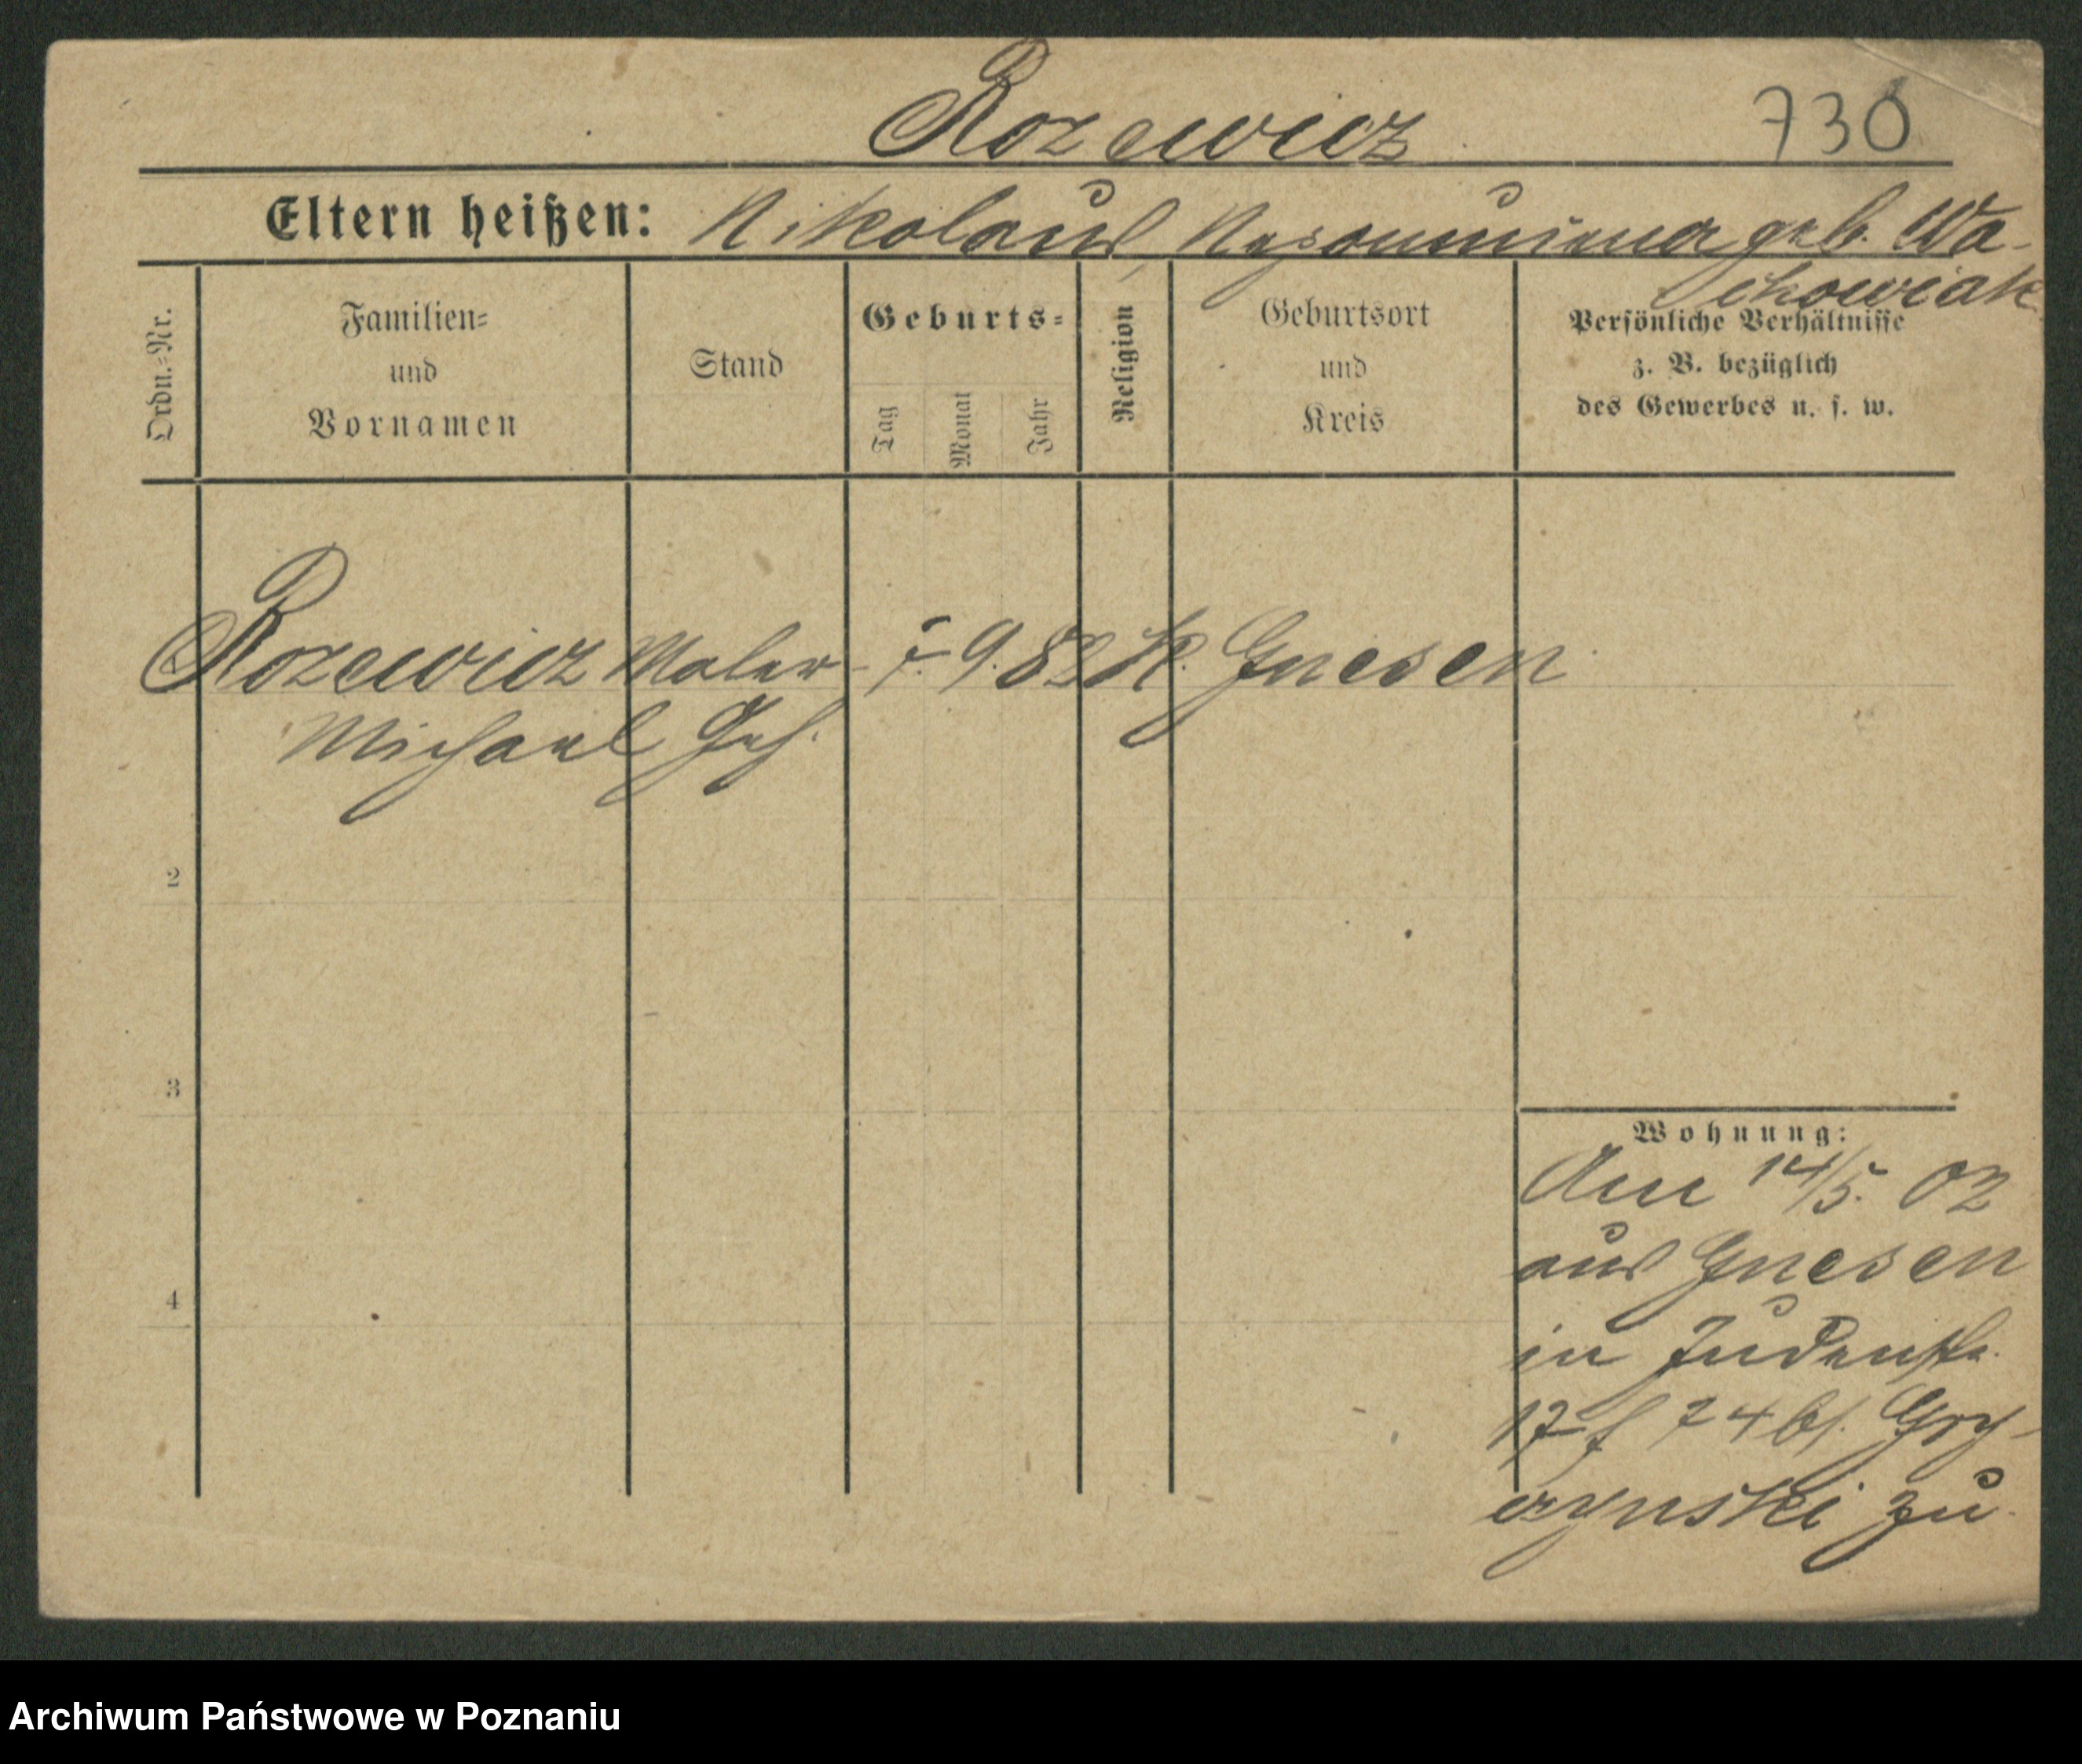 Rozewicz 730
Eltern heißen: Nikolaus, Neponucena geb. Wa-
chowiak
Ordn.-Nr.
Familien-
und
Vornamen
Stand
Geburts-
Tag
Monat
Jahr
Religion
Geburtsort
und
Kreis
Persönliche Verhältnisse
z. B. bezüglich
des Gewerbes u. s. w.
Rozewicz Maler- 5. 9. 82 K. Gnesen
Michael Geh.
2
3
4
Wohnung:
Am 14/5. 02
aus Gnesen
in Judenstr.
Gry-
czynski zu
Archiwum Państwowe w Poznaniu